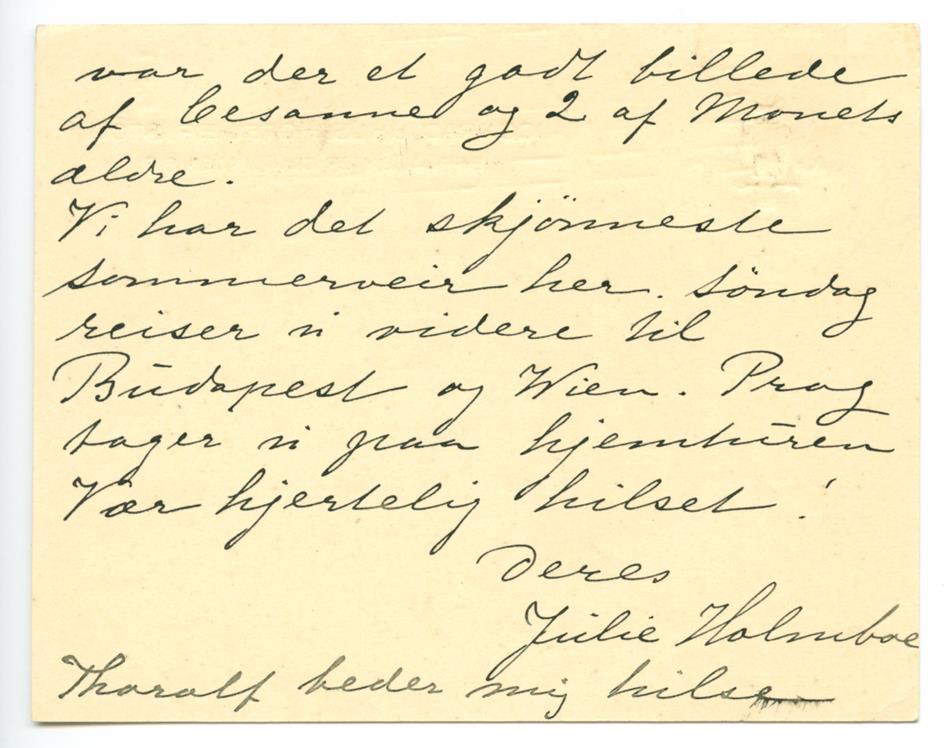 var der et godt billede
af Cesanne og 2 af Monets
ældre.
Vi har det skjönneste
sommerveir her. Söndag
reiser vi videre til
Budapest og Wien. Prag
tager vi paa hjemturen
Vær hjertelig hilset!
Deres
Julie Holmboe
Thorolf beder mig hilse